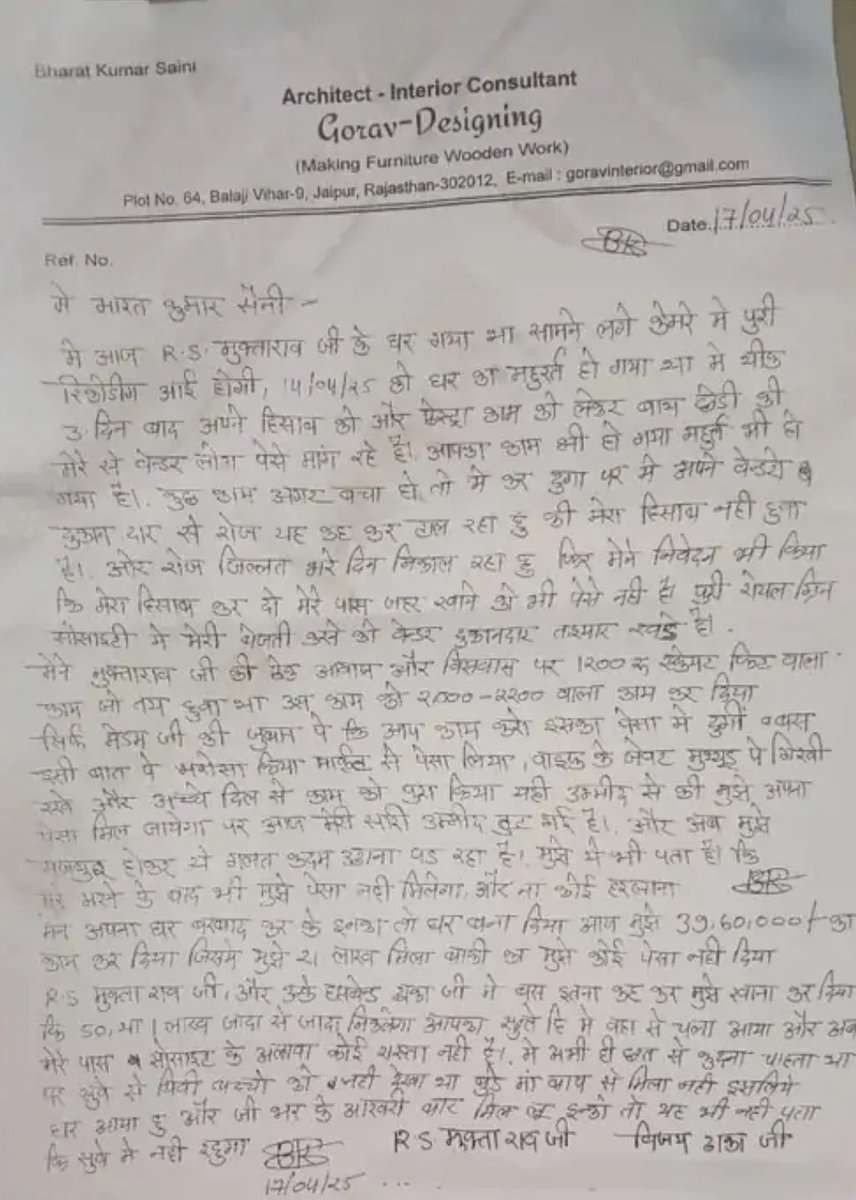 Bharat Kumar Saini
Architect - Interior Consultant
Gorav-Designing
(Making Furniture Wooden Work)
Plot No. 64, Balaji Vihar-9, Jaipur, Rajasthan-302012, E-mail : goravinterior@gmail.com
Date.17/04/25
Ref. No.
मे भारत कुमार सैनी -
मे आज R.S. मुक्ताराव जी के घर गया था सामने लगे केमरे मे पुरी
रिकोडींग आई होगी, 14/04/25 को घर का महुरर्त हो गया था मे ठीक
3 दिन बाद अपने हिसाब को और ऐस्ट्रा काम को लेकर बात की
मेरे से वेन्डर लोग पेसे मांग रहे है। आपका काम भी हो गया महुर्त भी हो
गया है। कुछ काम अगर बचा हो तो मे कर दुगा पर मे अपने वेन्डरो
दुकान दार से रोज यह कह कर टाल रहा हु की मेरा हिसाब नही हुवा
है। ओर रोज जिल्लत भरे दिन निकाल रहा हु फिर मेने निवेदन भी किया
कि मेरा हिसाब कर दो मेरे पास जहर खाने को भी पेसे नही है। पुरी रोयल ग्रिन
सोसाइटी मे मेरी बेजती करने को वेन्डर दुकानदार तइयार खडे है।
मेने मुक्ताराव जी की ऐक आवाज और विसवास पर 1200 रु स्केयर फिट वाला
काम जो तय हुवा था उस काम को 2000-2200 वाला काम कर दिया
सिर्फ मेडम जी की जुबान पे कि आप काम करो इसका पेसा मे दुगीं बस
इसी बात पे भरोसा किया मार्केट से पेसा लिया, वाइफ के जेवर मुथ्थुट पे गिरवी
रखे और अच्चे दिल से काम को पुरा किया यही उम्मीद से की मुझे अपना
पेसा मिल जायेगा पर आज मेरी सारी उम्मीद टुट गई है। और अब मुझे
मजबुर होकर ये गलत कदम उठाना पड रहा है। मुझे ये भी पता है। कि
मेरे मरने के बाद भी मुझे पेसा नही मिलेगा, और ना कोई
मेने अपना घर बरबाद कर के इनका तो घर बना दिया आज मुझे 39,60,000/- का
काम कर दिया जिसमे मुझे 21 लाख मिला बाकी का मुझे कोई पेसा नही दिया
R.S मुक्ता राव जी, और उनके हसबेन्ड ढाका जी ने बस इतना कह कर मुझे रवाना कर दिया
कि 50, या 1 लाख जादा से जादा निकलेगा आपका मे वहा से चला आया और अब
मेरे पास सोसाइट के अलावा कोई रास्ता नही है। मे अभी ही छत से कुदना चाहता था
पर सुबे से बच्चो को नही देखा था बुढे मां बाप से मिला नही इसलिये
घर आया हु और जी भर के आखरी बार मिल लु इनको तो यह भी नही पता
कि सुबे मे नही रहुगा R.S. मुक्ता राव जी विजय ढाका जी
17/04/25 ...